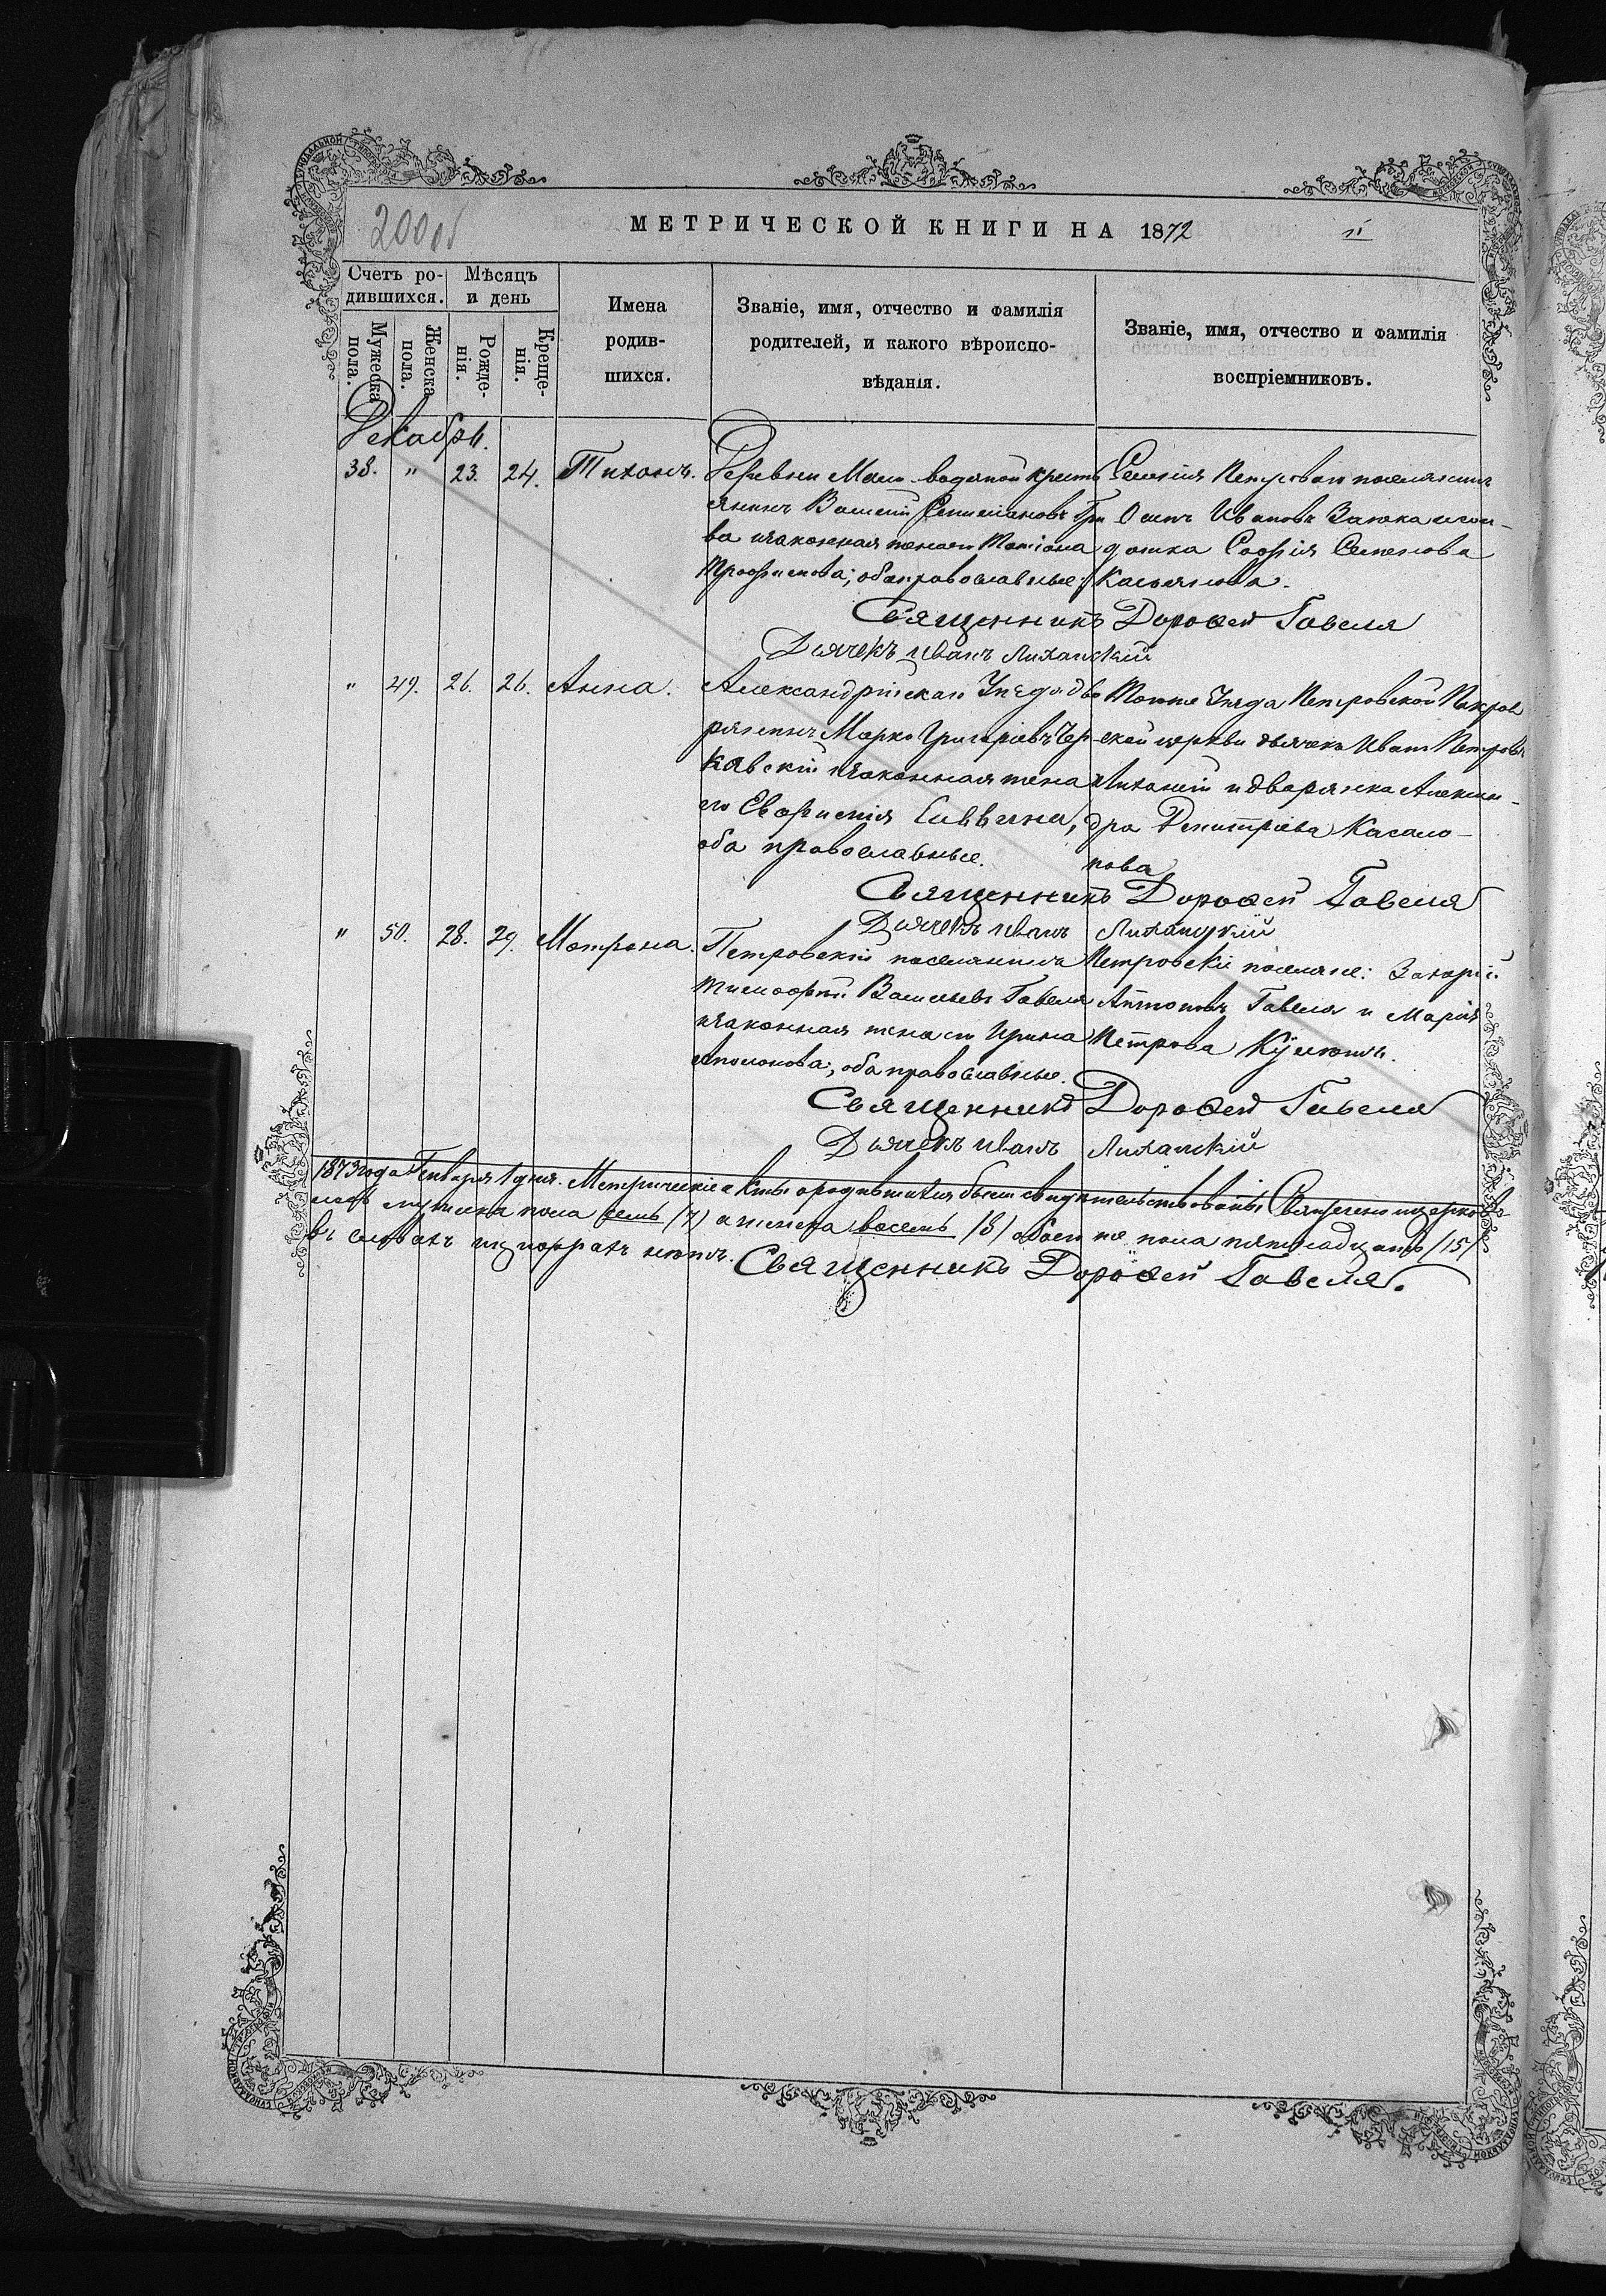 200 об
МЕТРИЧЕСКОЙ КНИГИ НА 1872
Счетъ ро-
дившихся.
Мужеска
пола.
Женска
пола.
Мѣсяцъ
и день
Рожде-
нія.
Креще-
нія.
Имена
родив-
шихся.
Званіе, имя, отчество и фамилія
родителей, и какого вѣроиспо-
вѣданія.
Званіе, имя, отчество и фамилія
воспріемниковъ.
Декабрь.
38. " 23. 24. Тихонъ.
Деревни водяной крестъ
янинъ Василій
ва и законная жена его Татіана
Трофимова; оба православные.
Селенія Петровой поселянинъ
Осипъ Ивановъ
София Семенова
Касьянова.
Священникъ Дорофей Гавеля
Дьячекъ Иванъ Лиханскій
" 49. 26. 26. Анна.
Александрійскаго Уѣзда дво
рянинъ Марко Григоріевъ Чер
кавскій и законная жена
его Евфимія Саввина,
оба православные.
Тогоже Уѣзда Петровской Покров
ской церкви дьячекъ Иванъ Петровъ
Лиханскій и дворянка Алексан-
дра Димитріева Касало-
пова
Священникъ Дорофей Гавеля
Дьячекъ Иванъ Лиханскій
" 50. 28. 29. Матрона.
Петровскій поселянинъ
Тимофей Васильевъ Гавеля
и законная жена его Ирина
оба православные.
Петровскіе поселяне: Захарій
Антоновъ Гавеля и Марія
Петрова
Священникъ Дорофей Гавеля
Дьячекъ Иванъ Лиханскій
1873 года Генваря 1 дня. Метрические акты о родившихся были свидетельствованы Священно и церков
мужеска пола семь (7) а женска восемь (8) обоего пола пятнадцать (15)
въ словахъ и цифрахъ нетъ. Священникъ Дорофей Гавеля.